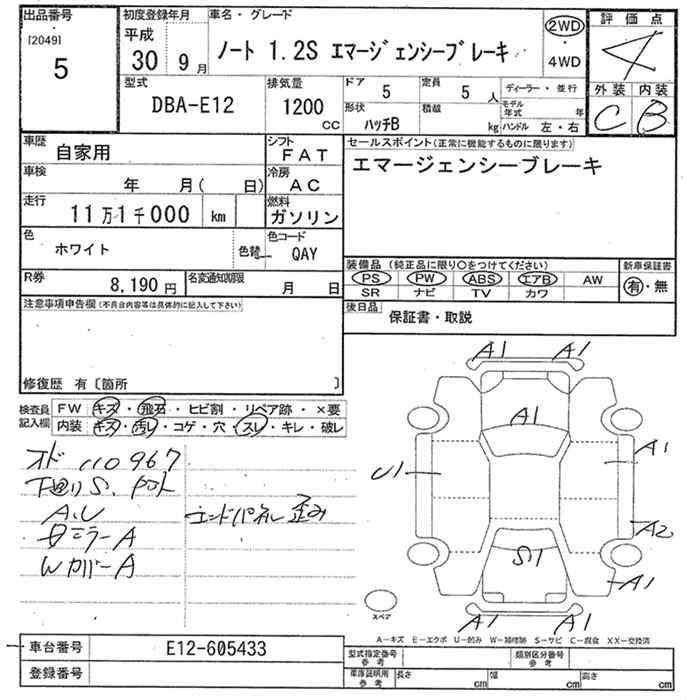 出品番号 初度登録年月 車名・グレード 評価点
[2049] 平成 2WD
5 30 9月 ノート 1.2S エマージェンシーブレーキ ・ 4
4WD
型式 排気量 ドア 5 定員 5 人 ディーラー・並行 外装 内装
DBA-E12 1200 cc 形状 ハッチB 積載 kg モデル年式 年 C B
ハンドル 左・右
車歴 自家用 シフト FAT セールスポイント(正常に機能するものに限ります)
車検 年 月( 日) 冷房 AC エマージェンシーブレーキ
走行 11万1千000 km 燃料 ガソリン
色 ホワイト 色替 色コード QAY
装備品(純正品に限り○をつけてください) 新車保証書
R券 8,190円 名変通知期限 月 日 PS PW ABS エアB AW 有・無
SR ナビ TV カワ
注意事項申告欄(不具合内容等は具体的に記入して下さい) 後日品 保証書・取説
修復歴 有〔箇所 〕
検査員記入欄 FW キズ・飛石・ヒビ割・リペア跡・×要
内装 キズ・汚レ・コゲ・穴・スレ・キレ・破レ
オド 110967
下回りS.
A.U エンドパネル歪み
ミラーA
WカバーA
A1 A1
A1
U1 A1
A2
S1
A1
スペア
A1 A1
A-キズ E-エクボ U-凹み W-補修跡 S-サビ C-腐食 XX-交換済
車台番号 E12-605433 型式指定番号 参考 類別区分番号 参考
登録番号 車庫証明用 参考 長さ cm 幅 cm 高さ cm